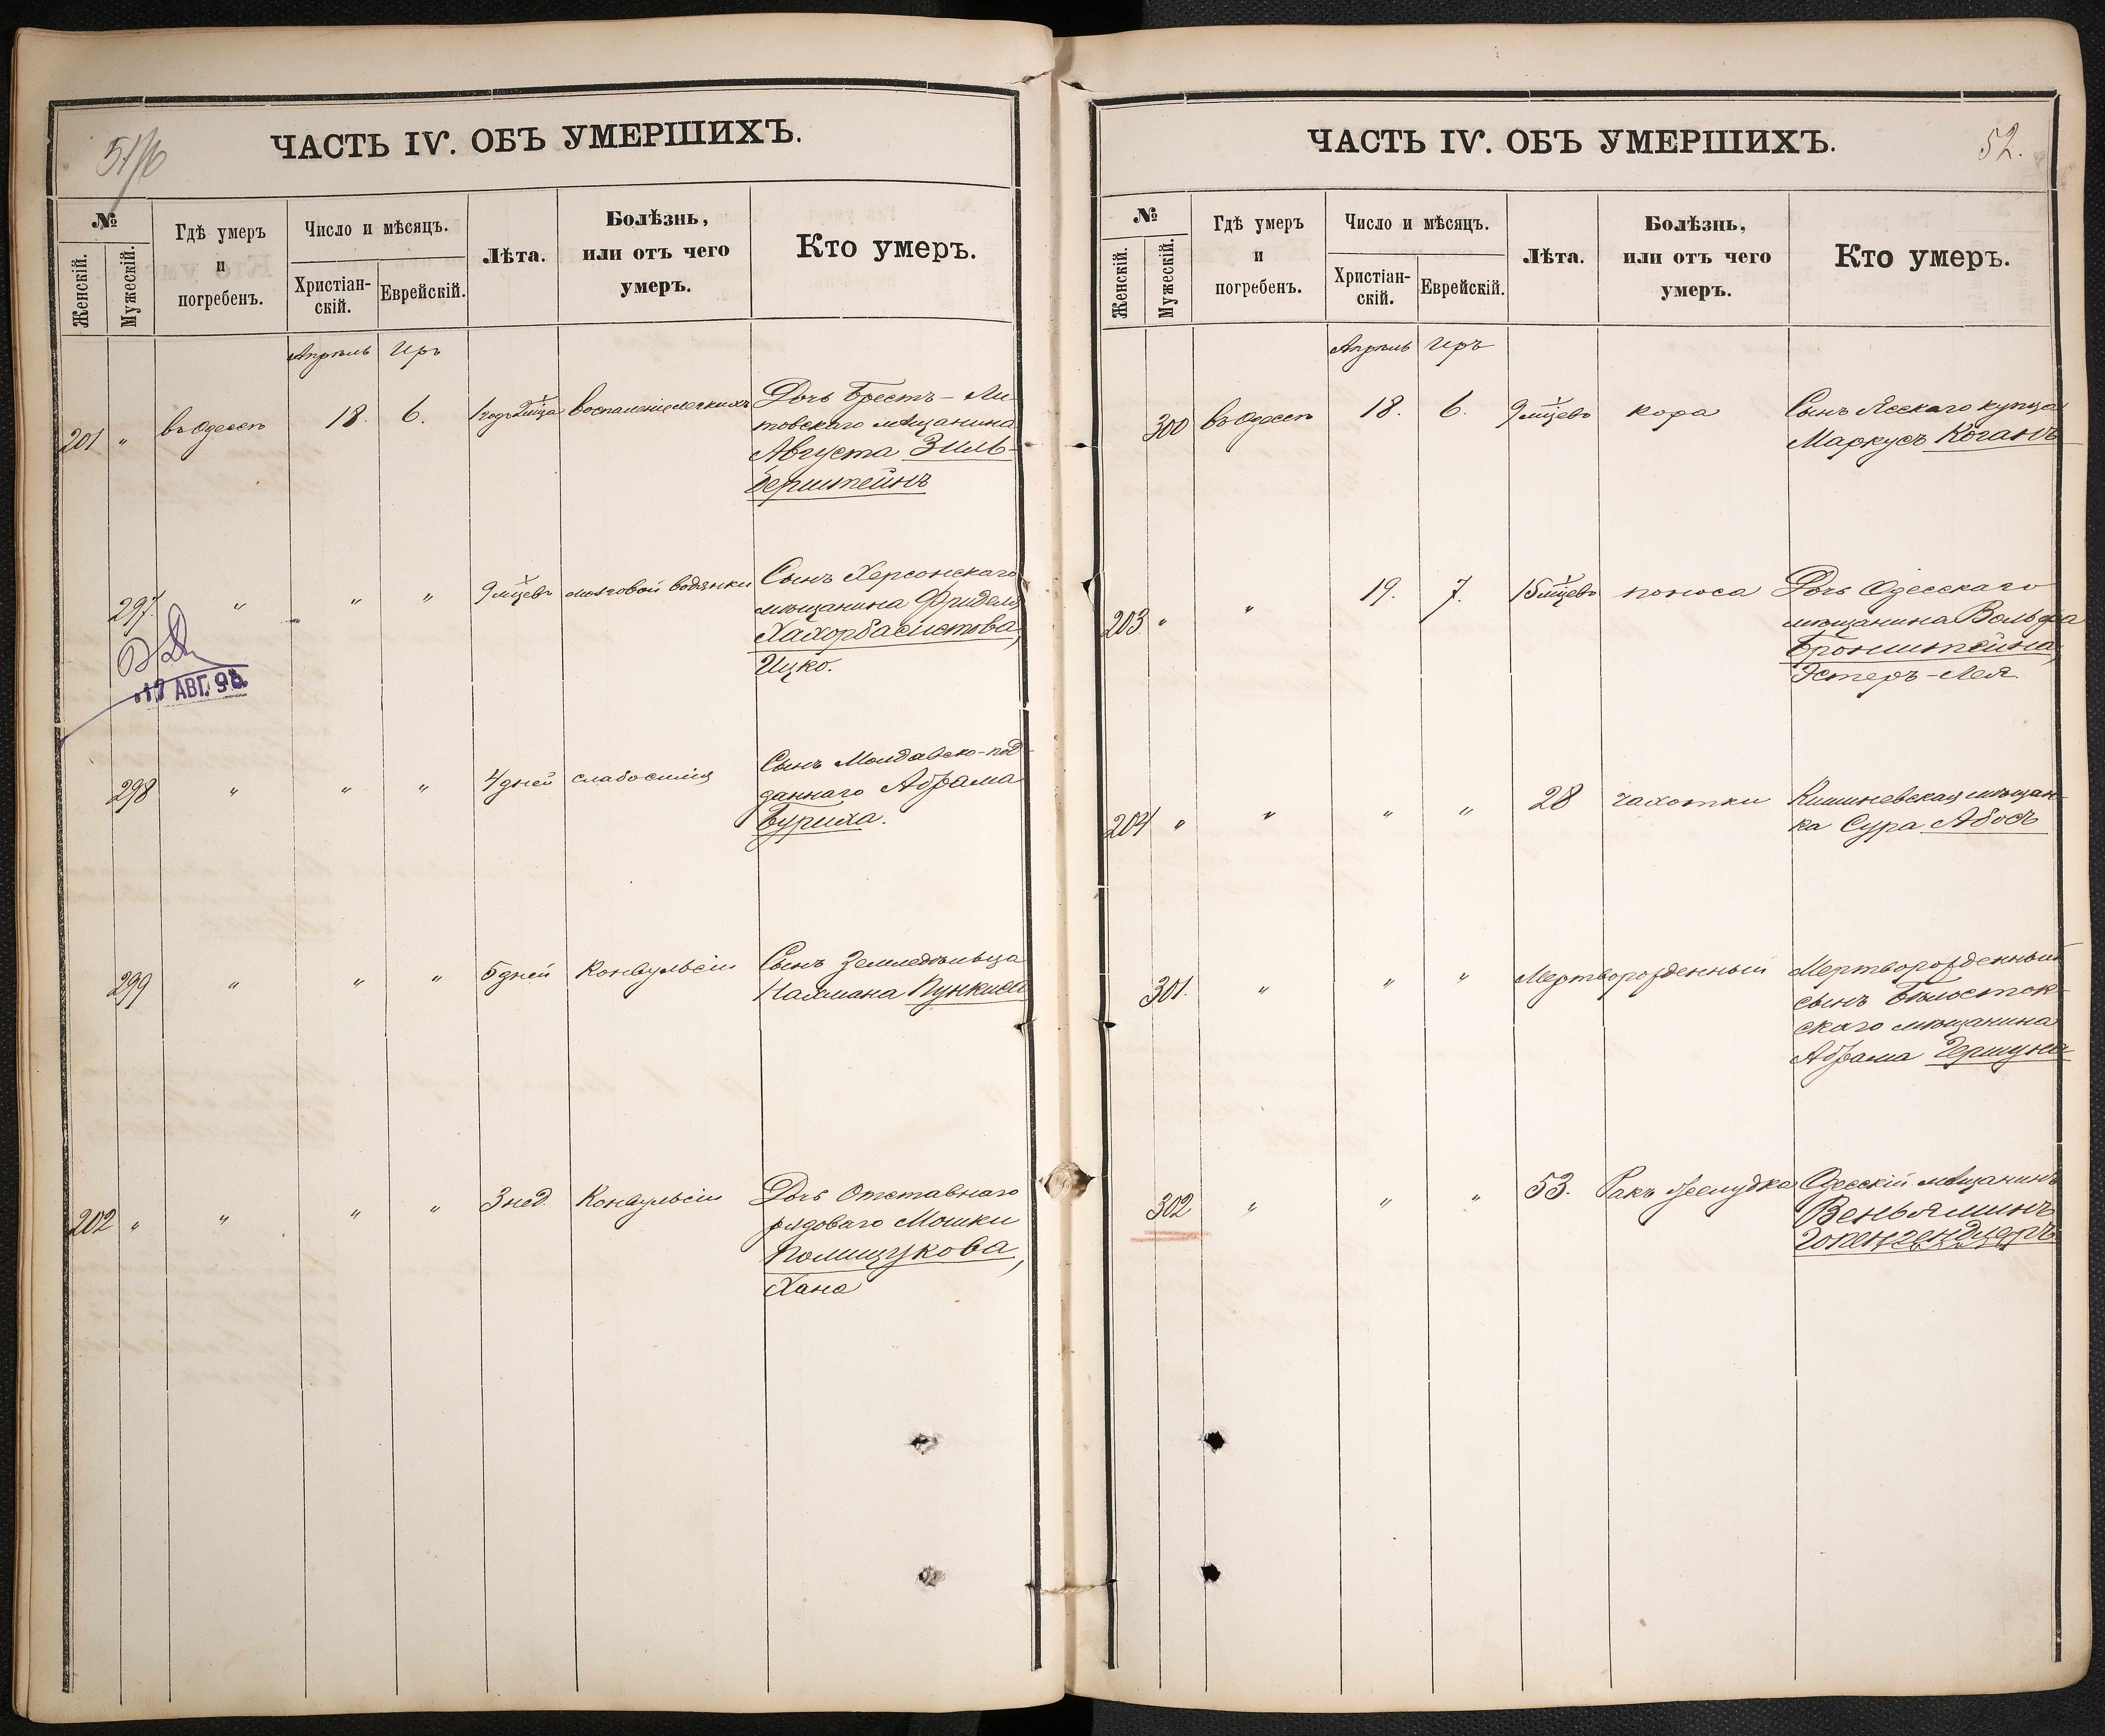 51/об
ЧАСТЬ IV. ОБЪ УМЕРШИХЪ.
№
Женскій.
Мужескій.
Гдѣ умеръ
и
погребенъ.
Число и мѣсяцъ.
Христіан-
скій.
Еврейскій.
Лѣта.
Болѣзнь,
или отъ чего
умеръ.
Кто умеръ.
Апрѣль Иръ
201 " въ Одессѣ 18. 6. 1 годъ 2 мѣца воспаленіе легкихъ Дочь Брестъ-Ли-
товскаго мѣщанина
Августа Зиль-
берштейнъ
297. " " " 9 мѣцевъ мозговой водянки Сынъ Херсонскаго
мѣщанина Фриделя
Ицко.
17 АВГ. 98
298 " " " 4 дней слабосилія Сынъ Молдавско-под-
даннаго Абрама
Буриха.
299 " " " 5 дней Конвульсіи Сынъ Земледѣльца
Нахмана
202 " " " " 3 нед. Конвульсіи Дочь Отставнаго
рядоваго Мошки
Полищукова,
Хана
ЧАСТЬ IV. ОБЪ УМЕРШИХЪ.
52.
№
Женскій.
Мужескій.
Гдѣ умеръ
и
погребенъ.
Число и мѣсяцъ.
Христіан-
скій.
Еврейскій.
Лѣта.
Болѣзнь,
или отъ чего
умеръ.
Кто умеръ.
Апрѣль Иръ
300 въ Одессѣ 18. 6. 9 мѣцевъ кора Сынъ Ясскаго купца
Маркусъ Коганъ
203 " " 19. 7. 15 мѣцевъ поноса Дочь Одесскаго
мѣщанина Вольфа
Бронштейна,
Эстеръ-Лея.
204 " " " " 28 чахотки Кишиневская мѣщан-
ка Сура Абосъ
301. " " " Мертворожденный Мертворожденный
сынъ Бѣлосток-
скаго мѣщанина
Абрама Гершуна
302 " " " 53. Ракъ желудка Одесскій мѣщанинъ
Веньяминъ
Гопенгендлеръ